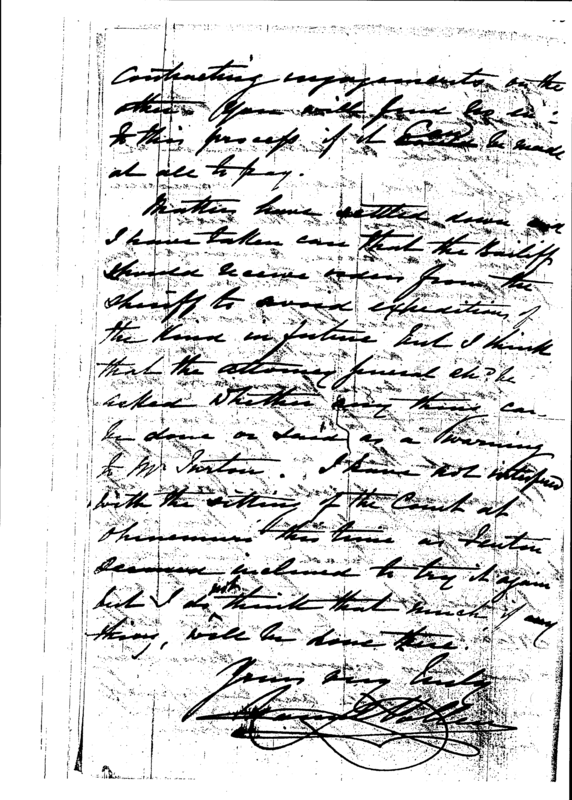 contracting engagements on the
other. You will find us
to this process if it can be made
at all to pay.
Matters have settled down and
I have taken care that the Bailiff
should receive orders from the
Sheriff to avoid expeditions of
the kind in future but I think
that the attorney general shd. be
asked whether any thing can
be done or said as a warning
to Mr. I have not interfered
with the sitting of the Court at
Ohinemuri this time as
seemed inclined to try it again
but I do not think that much if any
thing, will be done there.
Yours very truly